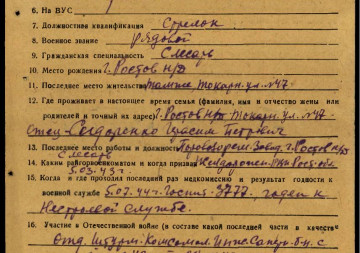 6. На ВУС
7. Должностная квалификация Стрелок
8. Военное звание Рядовой
9. Гражданская специальность Слесарь
10. Место рождения г. Ростов н/Д
11. Последнее место жительства там же Токарн. ул. №47
12. Где проживает в настоящее время семья (фамилия, имя и отчество жены или
родителей и точный их адрес) г. Ростов н/Д Токарн. ул. №47
Отец Бондаренко Петрович
13. Последнее место работы и должность Паровозорем. завод г. Ростов н/Д
Слесарь
14. Каким райгорвоенкоматом и когда призван РВК Ростов
5.03.43 г.
15. Когда где проходил последний раз медкомиссию и результат годности к
военной службе 5.07.44 г. Госпит. 3777, годен к
Нестроевой службе.
16. Участие в Отечественной войне (в составе какой последней части и в качестве
Отд. Штурм. Комсомол. Инж. Сапер. б-н с